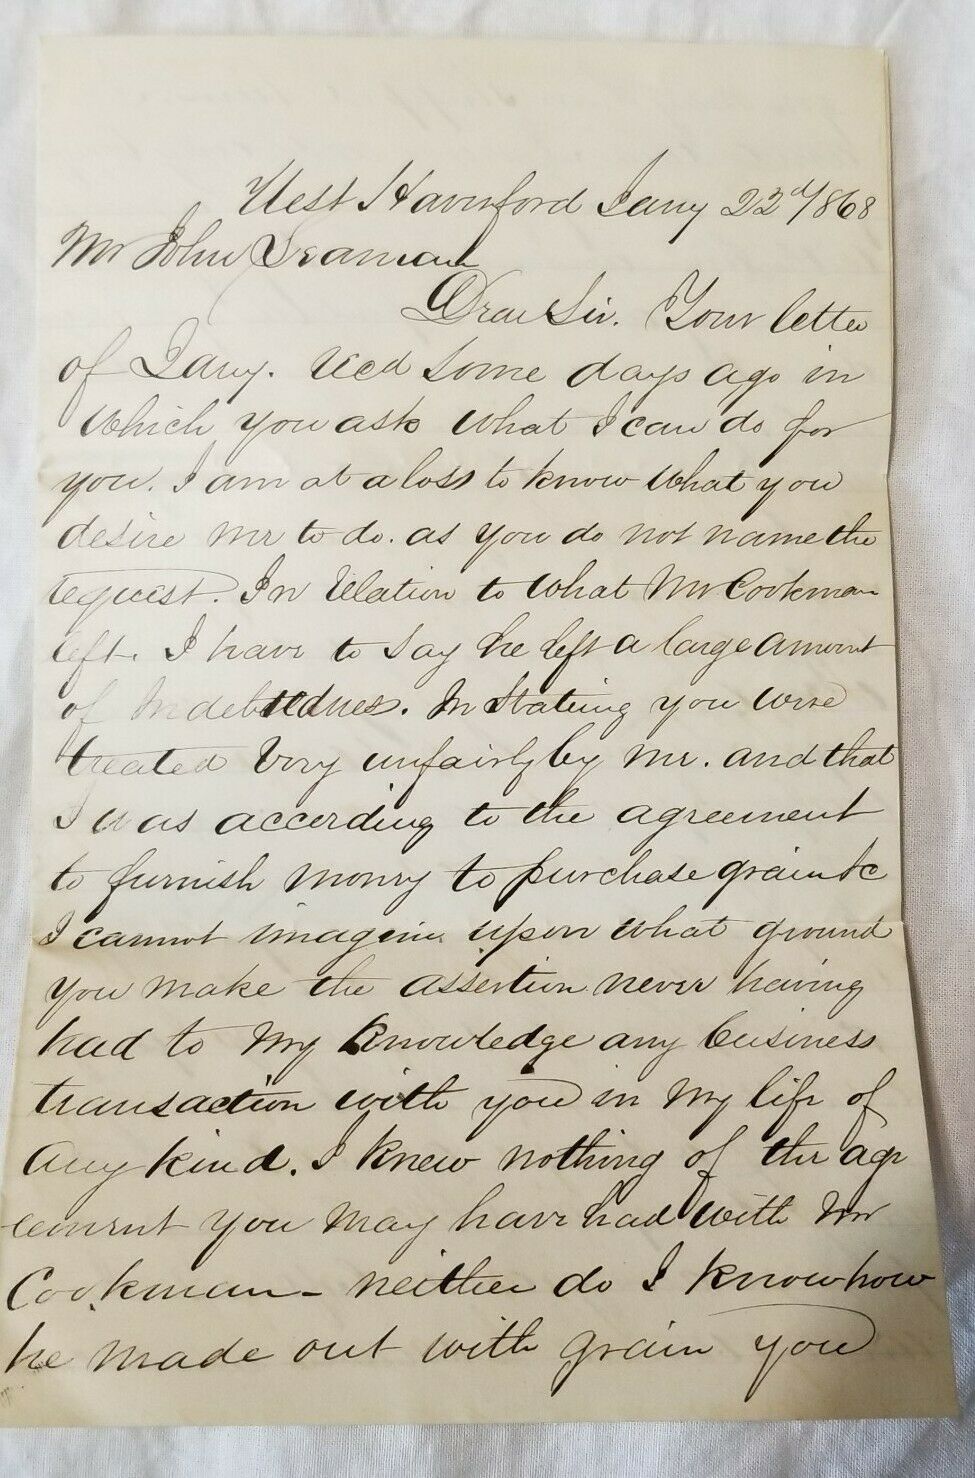 West Haverford Jany 22d 1868
Mr John Seaman
Dear Sir. Your letter
of Jany. Recd some days ago in
which you ask what I can do for
you. I am at a loss to know what you
desire me to do. as you do not name the
request. In Relation to what Mr Cookman
left. I have to say he left a large amount
of Indebtedness. In Stateing you were
treated very unfairly by me. and that
I was according to the agreement
to furnish money to purchase grain &c
I cannot imagine upon what ground
you make the assertion never having
had to my knowledge any business
transaction with you in my life of
any kind. I knew nothing of the agr
eement you may have had with Mr
Cookman - neither do I know how
he made out with grain you